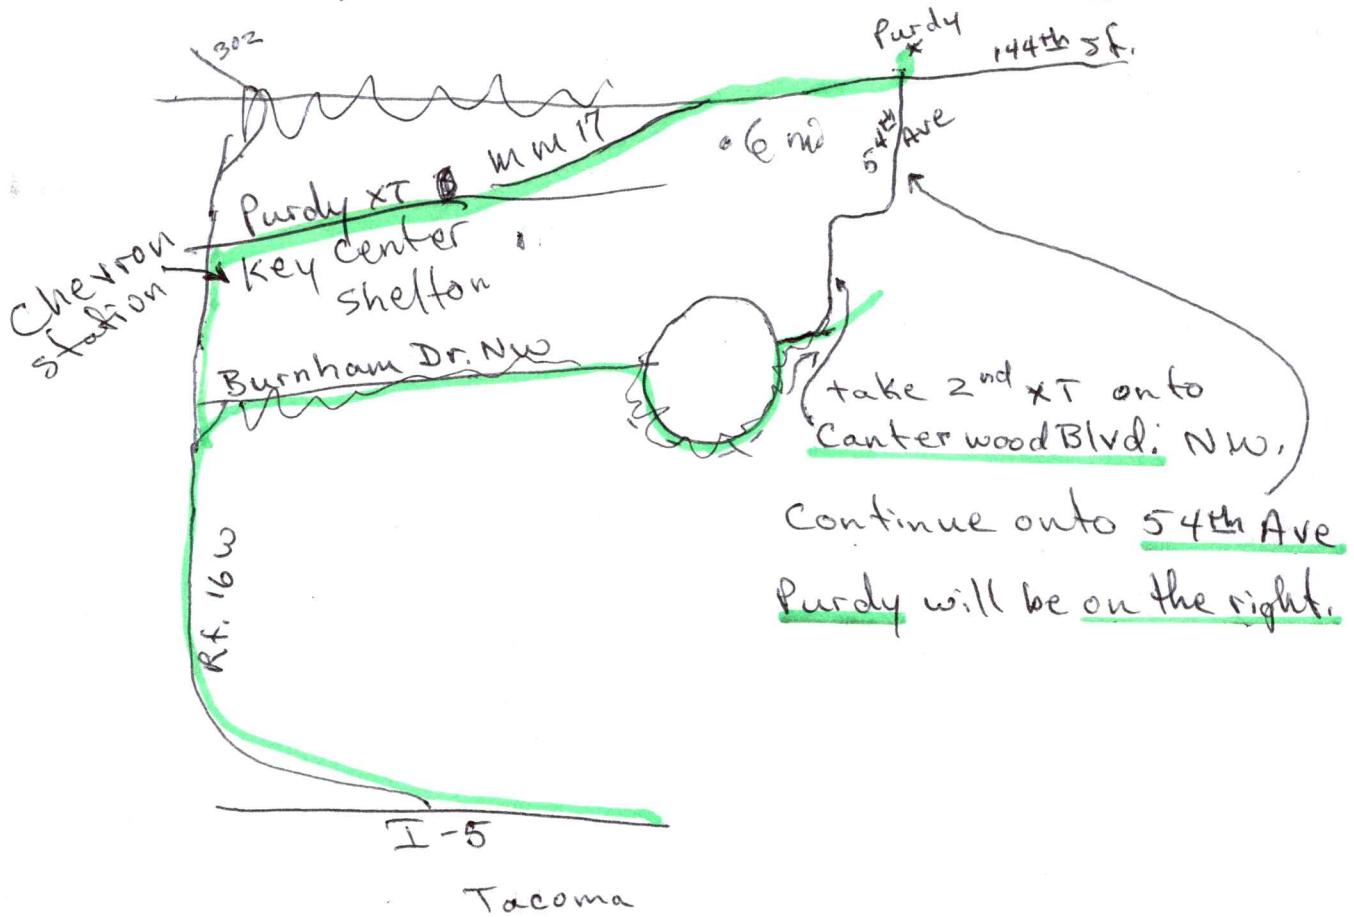 302
Purdy
144th St.
54th Ave
.6 mi
mm 17
Purdy xT
Key Center
Shelton
Chevron
Station
Burnham Dr. NW
take 2nd xT onto
Canterwood Blvd. NW.
Continue onto 54th Ave
Purdy will be on the right.
Rt. 16 W
I-5
Tacoma